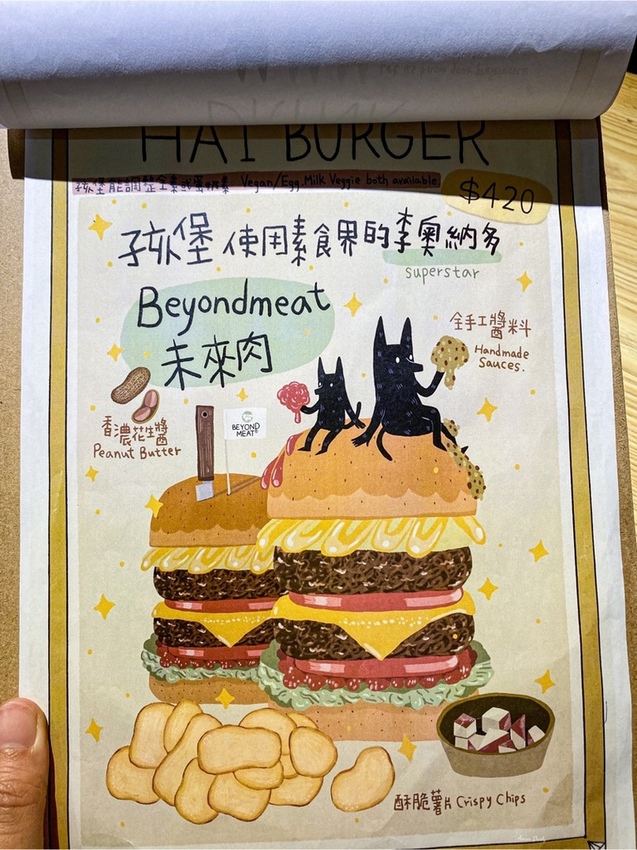 HAI BURGER
孩堡能調整全素或蛋奶素 Vegan/Egg, Milk Veggie both available
$420
孩堡 使用素食界的李奧納多
superstar
Beyondmeat
未來肉
全手工醬料
Handmade
Sauces.
香濃花生醬
Peanut Butter
BEYOND
MEAT®
酥脆薯片 Crispy Chips